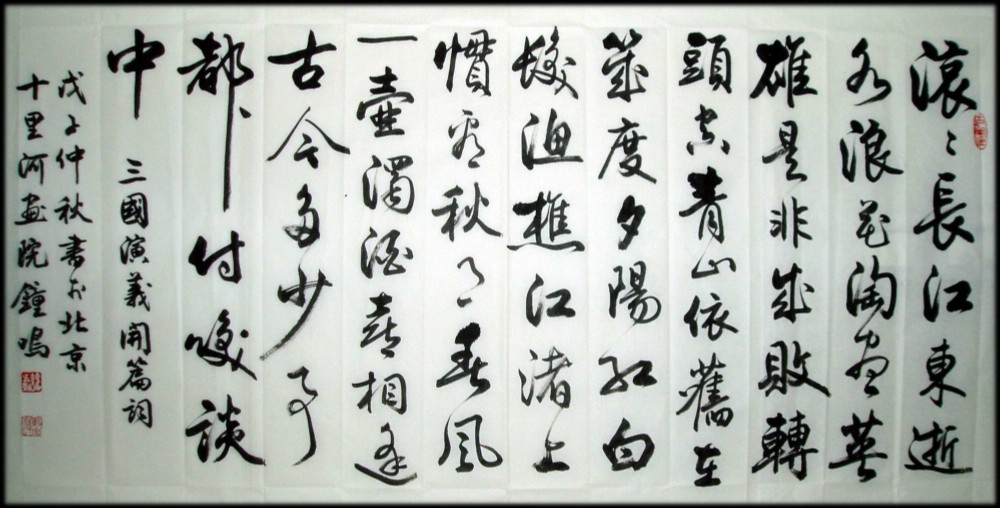 滚〻長江東逝
水浪花淘盡英
雄是非成敗轉
頭空青山依舊在
幾度夕陽紅白
髮漁樵江渚上
慣看秋月春風
一壺濁酒喜相逢
古今多少事
都〻付笑談
中 三國演義開篇詞
戊子仲秋書於北京
十里河畫院鐘鳴